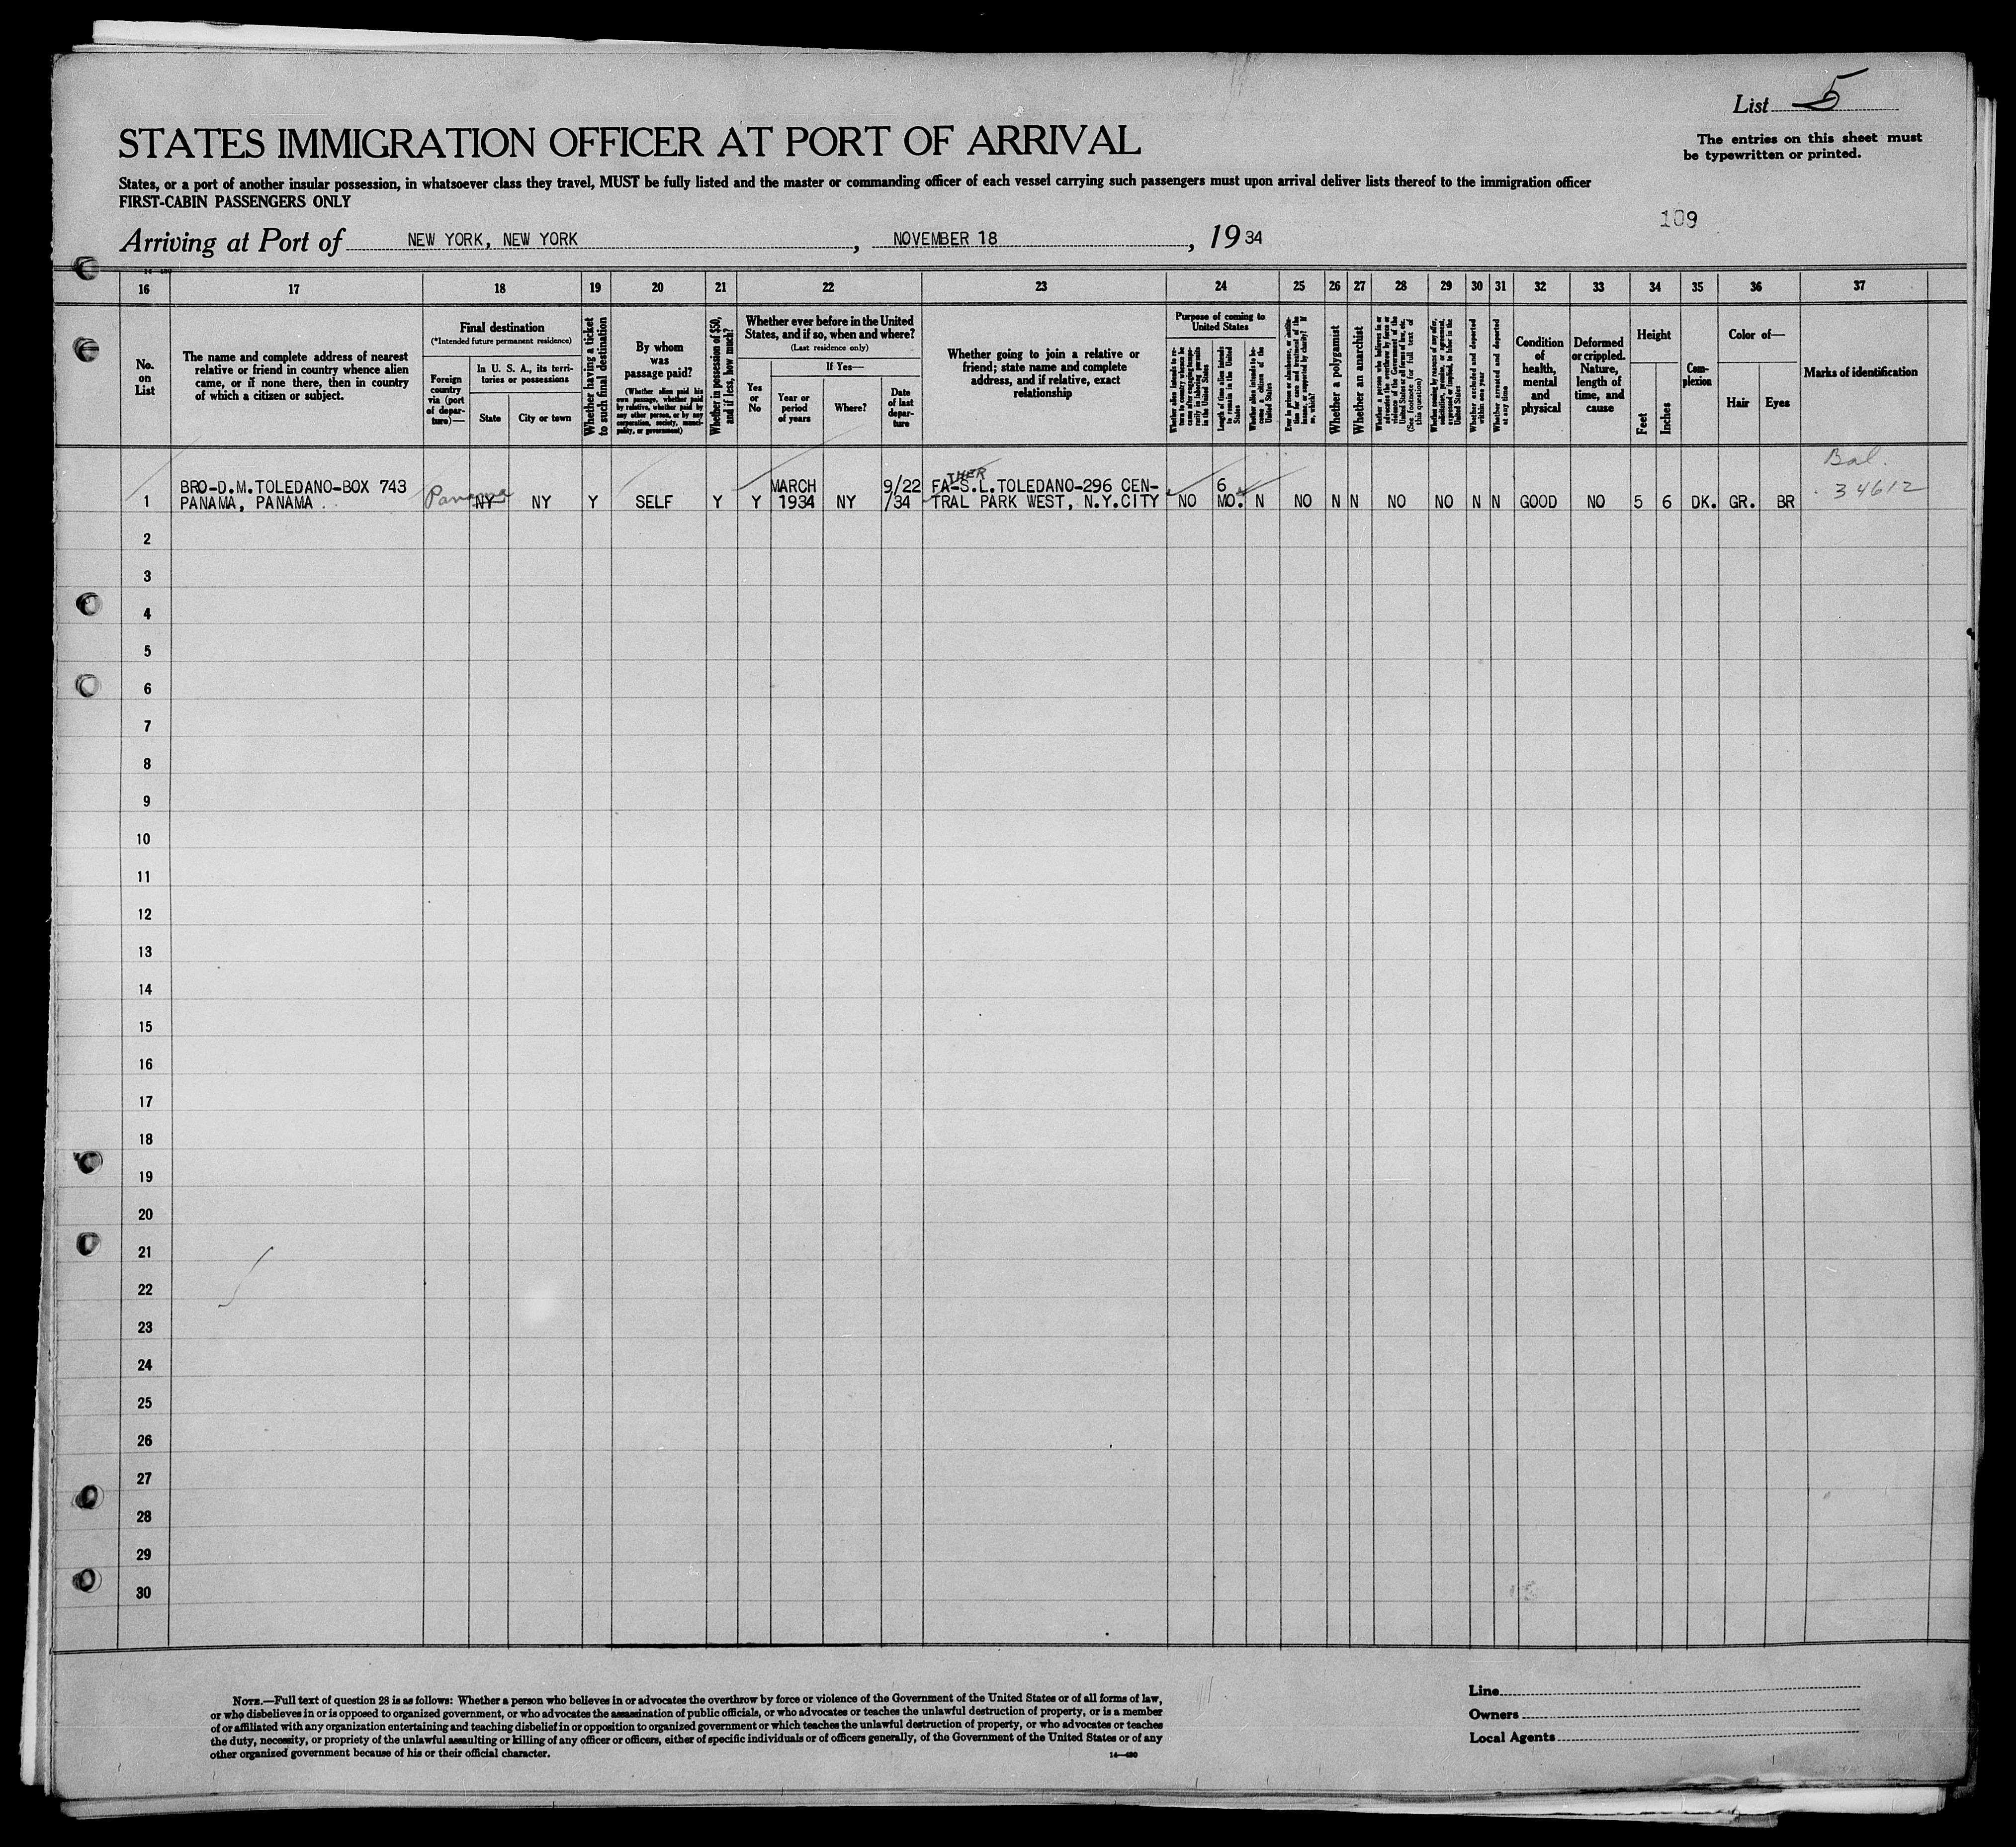 List 5
STATES IMMIGRATION OFFICER AT PORT OF ARRIVAL
The entries on this sheet must
be typewritten or printed.
States, or a port of another insular possession, in whatsoever class they travel, MUST be fully listed and the master or commanding officer of each vessel carrying such passengers must upon arrival deliver lists thereof to the immigration officer
FIRST-CABIN PASSENGERS ONLY
109
Arriving at Port of NEW YORK, NEW YORK, NOVEMBER 18, 1934
16 17 18 19 20 21 22 23 24 25 26 27 28 29 30 31 32 33 34 35 36 37
No.
on
List
The name and complete address of nearest
relative or friend in country whence alien
came, or if none there, then in country
of which a citizen or subject.
Final destination
(*Intended future permanent residence)
Foreign
country
via (port
of depar-
ture)—
In U. S. A., its terri-
tories or possessions
State
City or town
Whether having a ticket
to such final destination
By whom
was
passage paid?
(Whether alien paid his
own passage, whether paid
by relative, whether paid by
any other person, or by any
corporation, society, munici-
pality, or government)
Whether in possession of $50,
and if less, how much?
Whether ever before in the United
States, and if so, when and where?
(Last residence only)
Yes
or
No
If Yes—
Year or
period
of years
Where?
Date
of last
depar-
ture
Whether going to join a relative or
friend; state name and complete
address, and if relative, exact
relationship
Purpose of coming to
United States
Whether alien intends to re-
turn to country whence he
came after engaging tempo-
rarily in laboring pursuits
in the United States
Length of time alien intends
to remain in the United
States
Whether alien intends to be-
come a citizen of the
United States
Ever in prison or almshouse, or institu-
tion for care and treatment of the
insane, or supported by charity? If
so, which?
Whether a polygamist
Whether an anarchist
Whether a person who believes in or
advocates the overthrow by force or
violence of the Government of the
United States or all forms of law, etc.
(See footnote for full text of
this question)
Whether coming by reason of any offer,
solicitation, promise, or agreement,
expressed or implied, to labor in the
United States
Whether excluded and deported
within one year
Whether arrested and deported
at any time
Condition
of
health,
mental
and
physical
Deformed
or crippled.
Nature,
length of
time, and
cause
Height
Feet
Inches
Com-
plexion
Color of—
Hair
Eyes
Marks of identification
THER Bal.
BRO-D.M.TOLEDANO-BOX 743 MARCH 9/22 FA-S.L.TOLEDANO-296 CEN- 6 34612
1 PANAMA, PANAMA. Panama NY NY Y SELF Y Y 1934 NY /34 TRAL PARK WEST, N.Y.CITY NO MO. N NO N N NO NO N N GOOD NO 5 6 DK. GR. BR
2
3
4
5
6
7
8
9
10
11
12
13
14
15
16
17
18
19
20
21
22
23
24
25
26
27
28
29
30
NOTE.—Full text of question 28 is as follows: Whether a person who believes in or advocates the overthrow by force or violence of the Government of the United States or of all forms of law,
or who disbelieves in or is opposed to organized government, or who advocates the assassination of public officials, or who advocates or teaches the unlawful destruction of property, or is a member
of or affiliated with any organization entertaining and teaching disbelief in or opposition to organized government or which teaches the unlawful destruction of property, or who advocates or teaches
the duty, necessity, or propriety of the unlawful assaulting or killing of any officer or officers, either of specific individuals or of officers generally, of the Government of the United States or of any
other organized government because of his or their official character.
14—430
Line
Owners
Local Agents